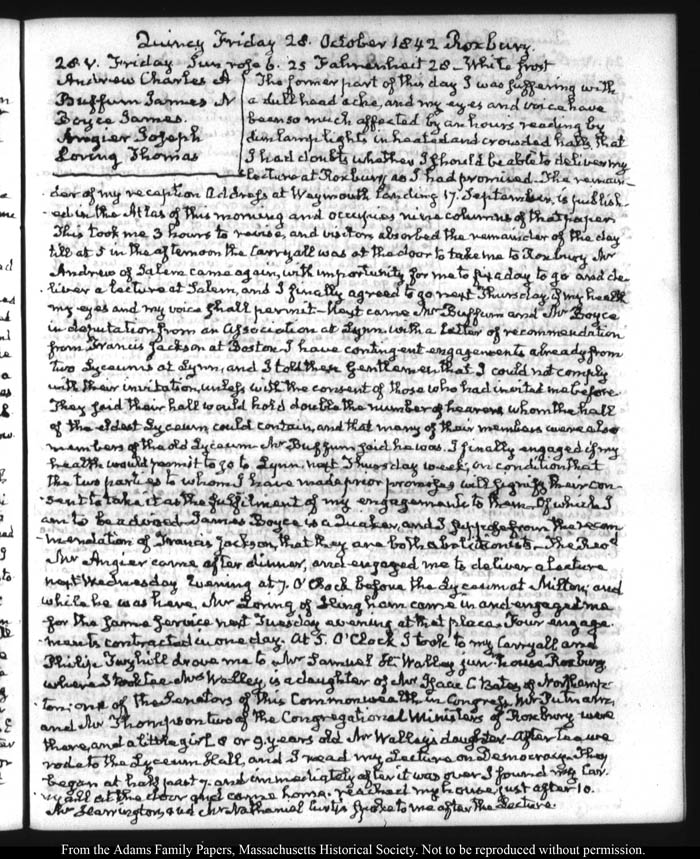 Quincy Friday 28. October 1842 Roxbury.
28. V. Friday Sun rose 6. 25 Fahrenheit 28 - White frost
Andrew Charles A
Buffum James N
Boyce James.
Angier Joseph
Loring Thomas
The former part of this day I was suffering with
a dull head ache, and my eyes and voice have
been so much affected by an hours reading by
dim lamp lights in heated and crowded halls, that
I had doubts whether I should be able to deliver my
lecture at Roxbury as I had promised. The remain-
der of my reception Address at Weymouth landing 17. September, is publish-
ed in the Atlas of this morning and occupies nine columns of that paper
This took me 3 hours to revise, and visitors absorbed the remainder of the day
till at 5 in the afternoon the Carryall was at the door to take me to Roxbury Mr
Andrew of Salem came again, with importunity for me to fix a day to go and de-
liver a lecture at Salem, and I finally agreed to go next Thursday, if my health
my eyes and my voice shall permit - Next came Mr Buffum and Mr Boyce
in deputation from an Association at Lynn. with a letter of recommendation
from Francis Jackson at Boston. I have contingent engagements already from
two Lyceums at Lynn, and I told these Gentlemen that I could not comply
with their invitation, unless with the consent of those who had invited me before.
They said their hall would hold double the number of hearers whom the hall
of the eldest Lyceum could contain, and that many of their members were also
members of the old Lyceum - Mr Buffum said he was. I finally engaged if my
health would permit to go to Lynn, next Thursday week, on condition that
the two parties to whom I have made prior promises will signify their con-
sent to take it as the fulfilment of my engagements to them. Of which I
am to be advised. James Boyce is a Quaker, and I suppose from the recom-
mendation of Francis Jackson, that they are both abolitionists. - The Revd
Mr Angier came after dinner, and engaged me to deliver a lecture
next Wednesday Evening at 7. O'Clock before the Lyceum at Milton; and
while he was here, Mr Loring of Hingham came in and engaged me
for the same service next Tuesday evening at that place. Four engage-
ments contracted in one day. At 5. O'Clock I took to my Carryall and
Philip drove me to Mr Samuel H. Walley junr house Roxbury
where I took tea Mrs Walley, is a daughter of Mr Isaac C. Bates of Northamp-
ton, one of the Senators of this Commonwealth in Congress. Mr Putnam,
and Mr Thompson two of the Congregational Ministers of Roxbury were
there, and a little girl 8 or 9. years old Mr Walley's daughter - After tea we
rode to the Lyceum Hall, and I read my Lecture on Democracy. They
began at half past 7. and immediately after it was over I found my Car-
ryall at the door and came home. reached my house just after 10.
Mr Harrington, and Mr Nathaniel Curtis spoke to me after the Lecture.
From the Adams Family Papers, Massachusetts Historical Society. Not to be reproduced without permission.